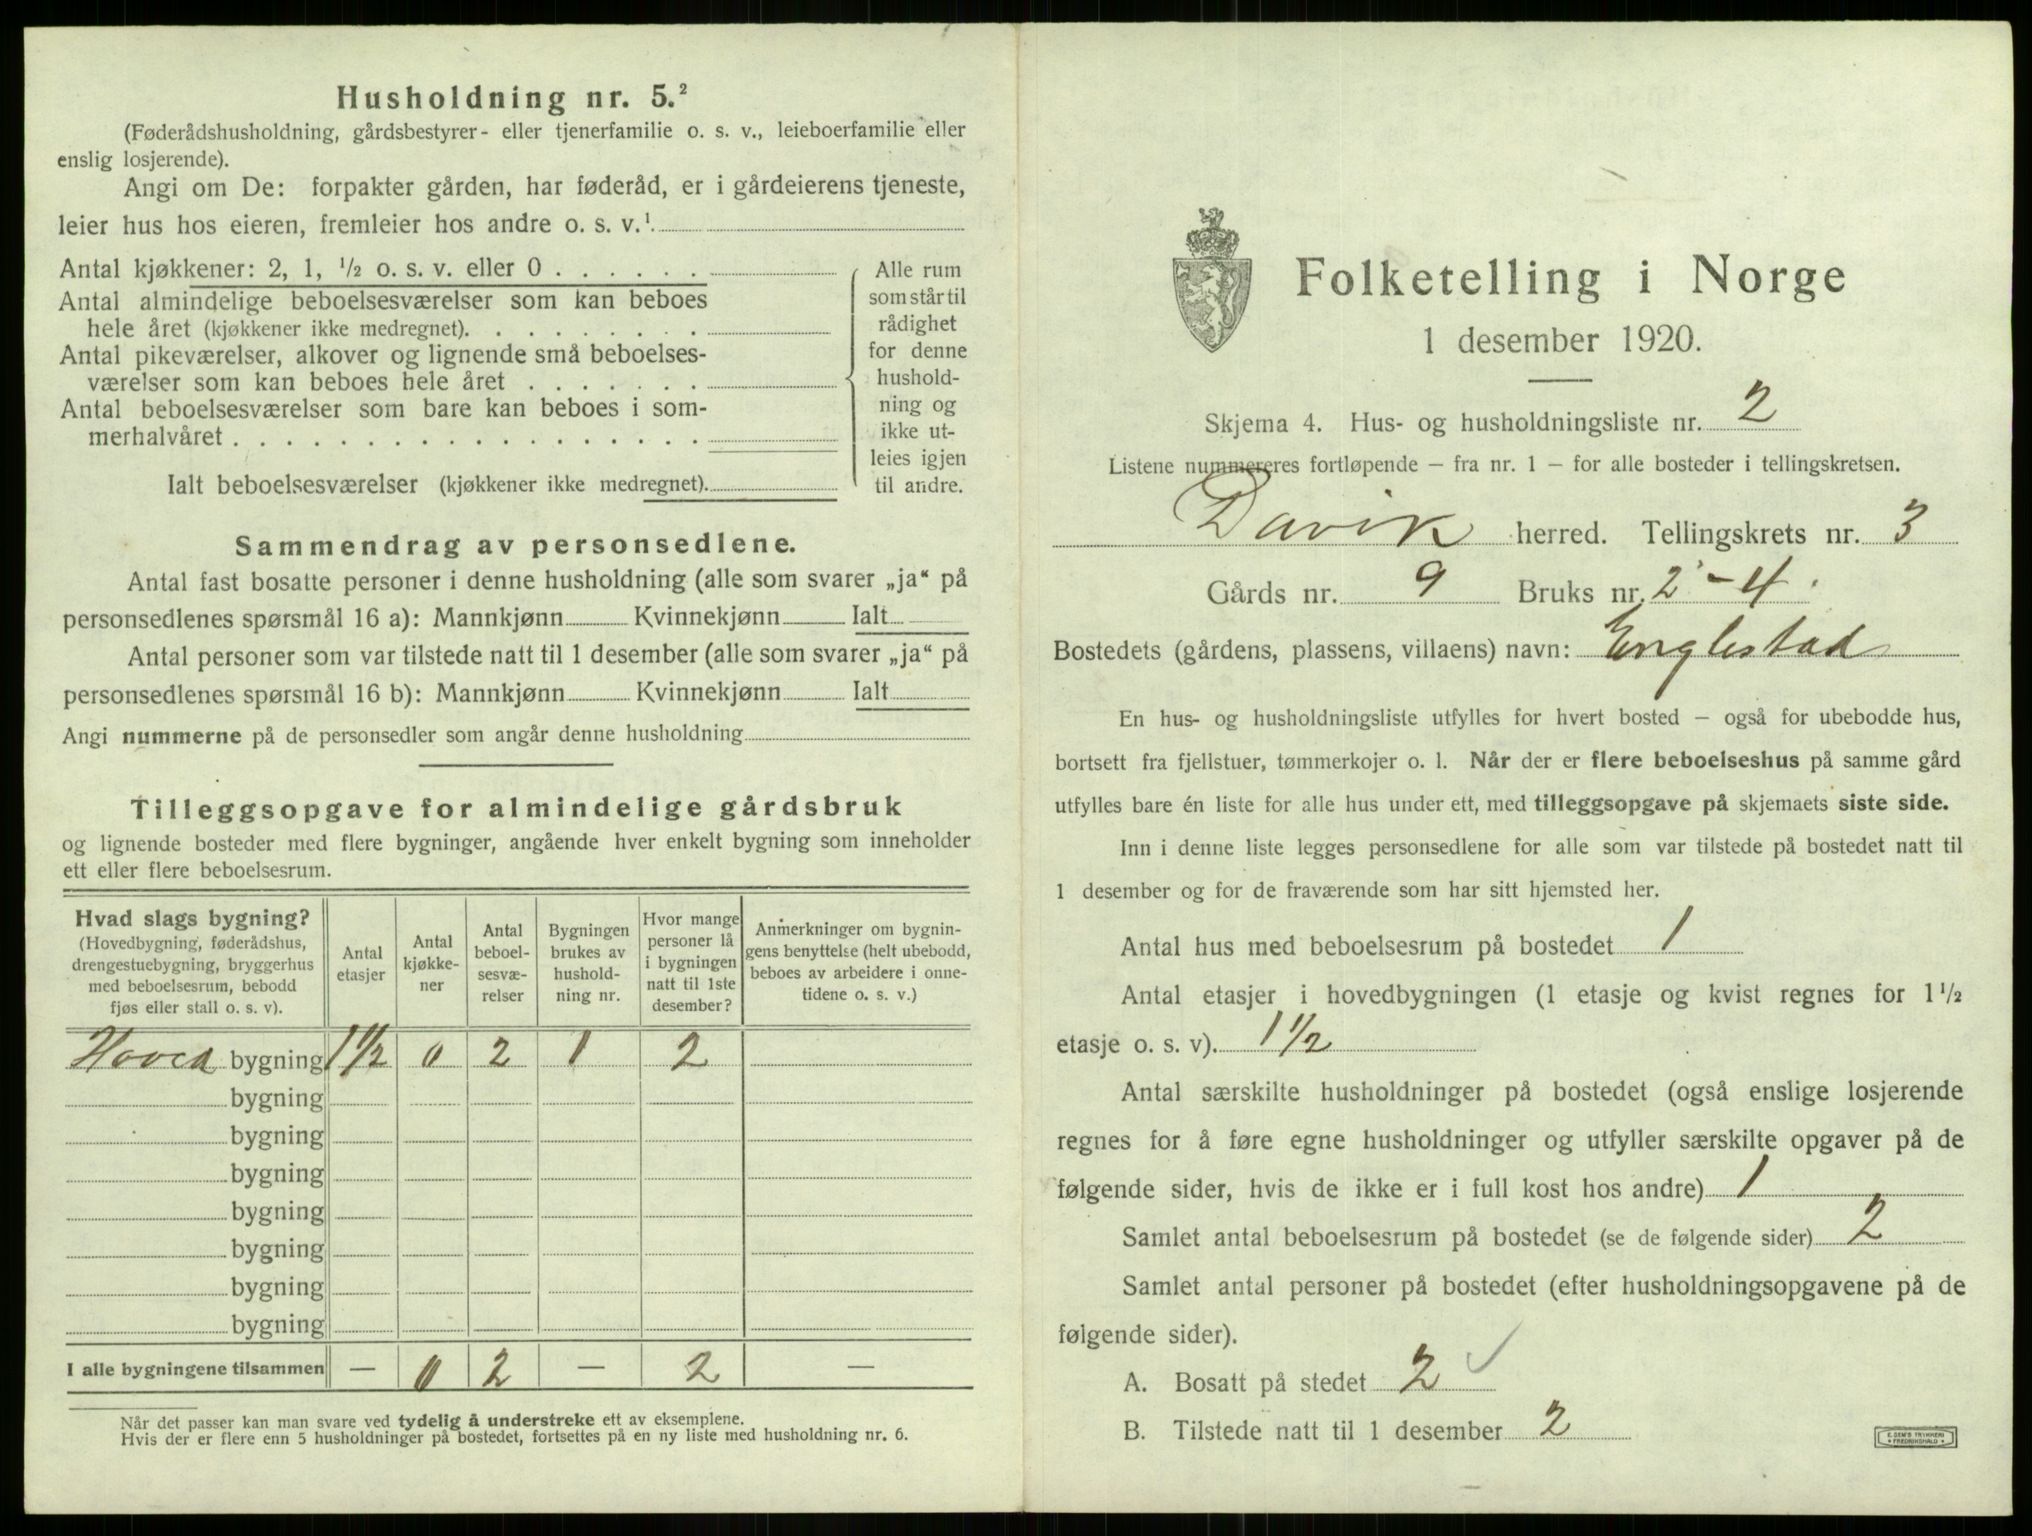 Husholdning nr. 5.²
(Føderådshusholdning, gårdsbestyrer- eller tjenerfamilie o. s. v., leieboerfamilie eller
enslig losjerende).
Angi om De: forpakter gården, har føderåd, er i gårdeierens tjeneste,
leier hus hos eieren, fremleier hos andre o. s. v.¹
Antal kjøkkener: 2, 1, ½ o. s. v. eller 0 . . . . . .
Antal almindelige beboelsesværelser som kan beboes
hele året (kjøkkener ikke medregnet). . . . . . . . .
Antal pikeværelser, alkover og lignende små beboelses-
værelser som kan beboes hele året . . . . . . .
Antal beboelsesværelser som bare kan beboes i som-
merhalvåret . . . . . . . . . . . . . . . . . .
Ialt beboelsesværelser (kjøkkener ikke medregnet).
Alle rum
som står til
rådighet
for denne
hushold-
ning og
ikke ut-
leies igjen
til andre.
Sammendrag av personsedlene.
Antal fast bosatte personer i denne husholdning (alle som svarer „ja“ på
personsedlenes spørsmål 16 a): Mannkjønn Kvinnekjønn Ialt
Antal personer som var tilstede natt til 1 desember (alle som svarer „ja“ på
personsedlenes spørsmål 16 b): Mannkjønn Kvinnekjønn Ialt
Angi nummerne på de personsedler som angår denne husholdning
Tilleggsopgave for almindelige gårdsbruk
og lignende bosteder med flere bygninger, angående hver enkelt bygning som inneholder
ett eller flere beboelsesrum.
Hvad slags bygning?
(Hovedbygning, føderådshus,
drengestuebygning, bryggerhus
med beboelsesrum, bebodd
fjøs eller stall o. s. v).
Antal
etasjer
Antal
kjøkke-
ner
Antal
beboel-
sesvæ-
relser
Bygningen
brukes av
hushold-
ning nr.
Hvor mange
personer lå
i bygningen
natt til 1ste
desember?
Anmerkninger om bygnin-
gens benyttelse (helt ubebodd,
beboes av arbeidere i onne-
tidene o. s. v.)
Hoved bygning 1½ 0 2 1 2
bygning
bygning
bygning
bygning
bygning
bygning
bygning
I alle bygningene tilsammen — 0 2 — 2 —
Når det passer kan man svare ved tydelig å understreke ett av eksemplene.
Hvis der er flere enn 5 husholdninger på bostedet, fortsettes på en ny liste med husholdning nr. 6.
Folketelling i Norge
1 desember 1920.
Skjema 4. Hus- og husholdningsliste nr. 2
Listene nummereres fortløpende – fra nr. 1 – for alle bosteder i tellingskretsen.
Davik herred. Tellingskrets nr. 3
Gårds nr. 9 Bruks nr. 2-4.
Bostedets (gårdens, plassens, villaens) navn: Englestad
En hus- og husholdningsliste utfylles for hvert bosted – også for ubebodde hus,
bortsett fra fjellstuer, tømmerkojer o. l. Når der er flere beboelseshus på samme gård
utfylles bare én liste for alle hus under ett, med tilleggsopgave på skjemaets siste side.
Inn i denne liste legges personsedlene for alle som var tilstede på bostedet natt til
1 desember og for de fraværende som har sitt hjemsted her.
Antal hus med beboelsesrum på bostedet 1
Antal etasjer i hovedbygningen (1 etasje og kvist regnes for 1½
etasje o. s. v). 1½
Antal særskilte husholdninger på bostedet (også enslige losjerende
regnes for å føre egne husholdninger og utfyller særskilte opgaver på de
følgende sider, hvis de ikke er i full kost hos andre) 1
Samlet antal beboelsesrum på bostedet (se de følgende sider) 2
Samlet antal personer på bostedet (efter husholdningsopgavene på de
følgende sider).
A. Bosatt på stedet 2 ✓
B. Tilstede natt til 1 desember 2
E. SEM'S TRYKKERI
FREDRIKSHALD